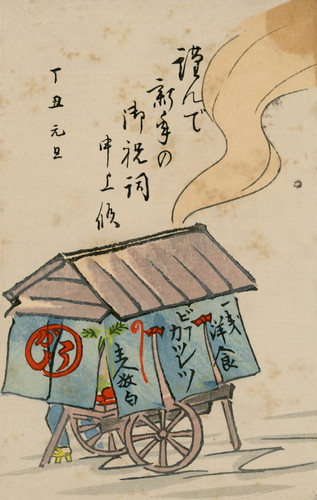 謹んで
新年の
御祝詞
申上候
丁丑 元旦
一銭
洋食
ビフ
カツレツ